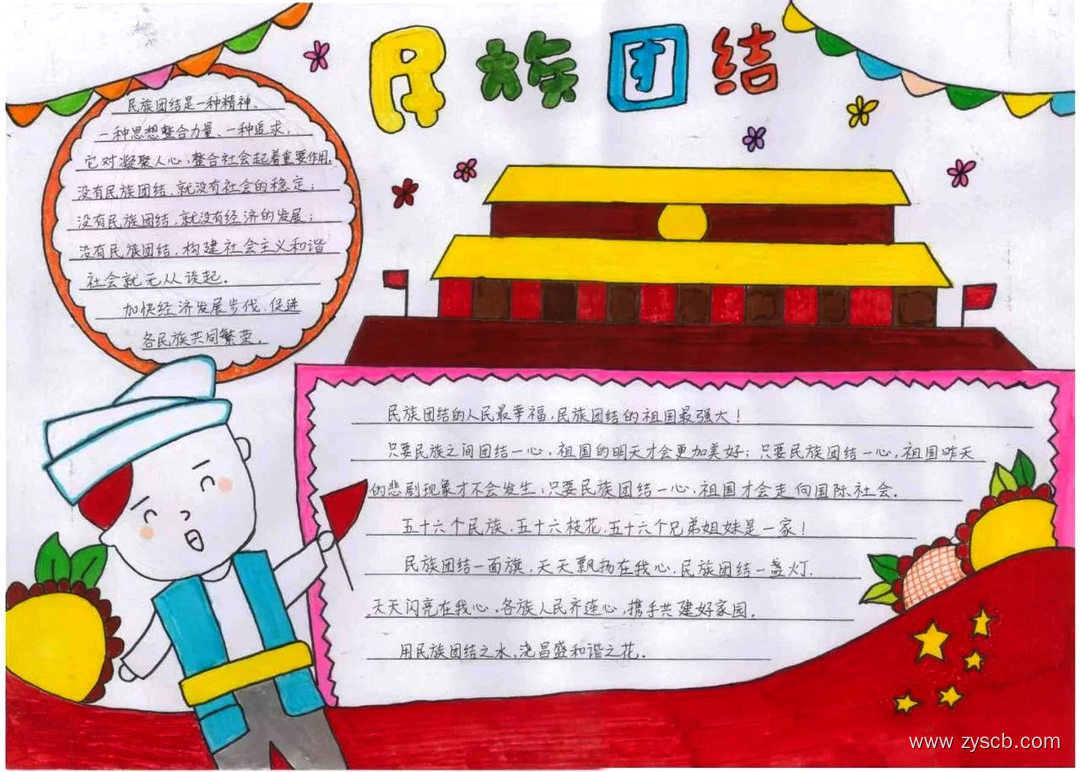 民族团结
民族团结是一种精神、
一种思想整合力量、一种追求,
它对凝聚人心、整合社会起着重要作用,
没有民族团结,就没有社会的稳定;
没有民族团结,就没有经济的发展;
没有民族团结,构建社会主义和谐
社会就无从谈起.
加快经济发展步伐,促进
各民族共同繁荣.
民族团结的人民最幸福,民族团结的祖国最强大!
只要民族之间团结一心,祖国的明天才会更加美好;只要民族团结一心,祖国昨天
的悲剧现象才不会发生;只要民族团结一心,祖国才会走向国际社会.
五十六个民族,五十六枝花,五十六个兄弟姐妹是一家!
民族团结一面旗,天天飘扬在我心,民族团结一盏灯.
天天闪亮在我心,各族人民齐连心,携手共建好家园.
用民族团结之水,浇昌盛和谐之花.
www zyscb.com